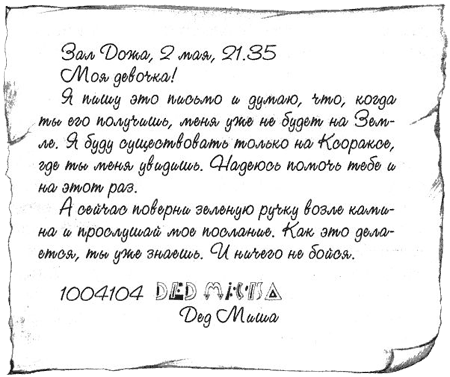 Зал Дожа, 2 мая, 21.35
Моя девочка!
Я пишу это письмо и думаю, что, когда
ты его получишь, меня уже не будет на Зем-
ле. Я буду существовать только на Ксораксе,
где ты меня увидишь. Надеюсь помочь тебе и
на этот раз.
А сейчас поверни зеленую ручку возле ками-
на и прослушай мое послание. Как это дела-
ется, ты уже знаешь. И ничего не бойся.
1004104 DED MICTSA
Дед Миша